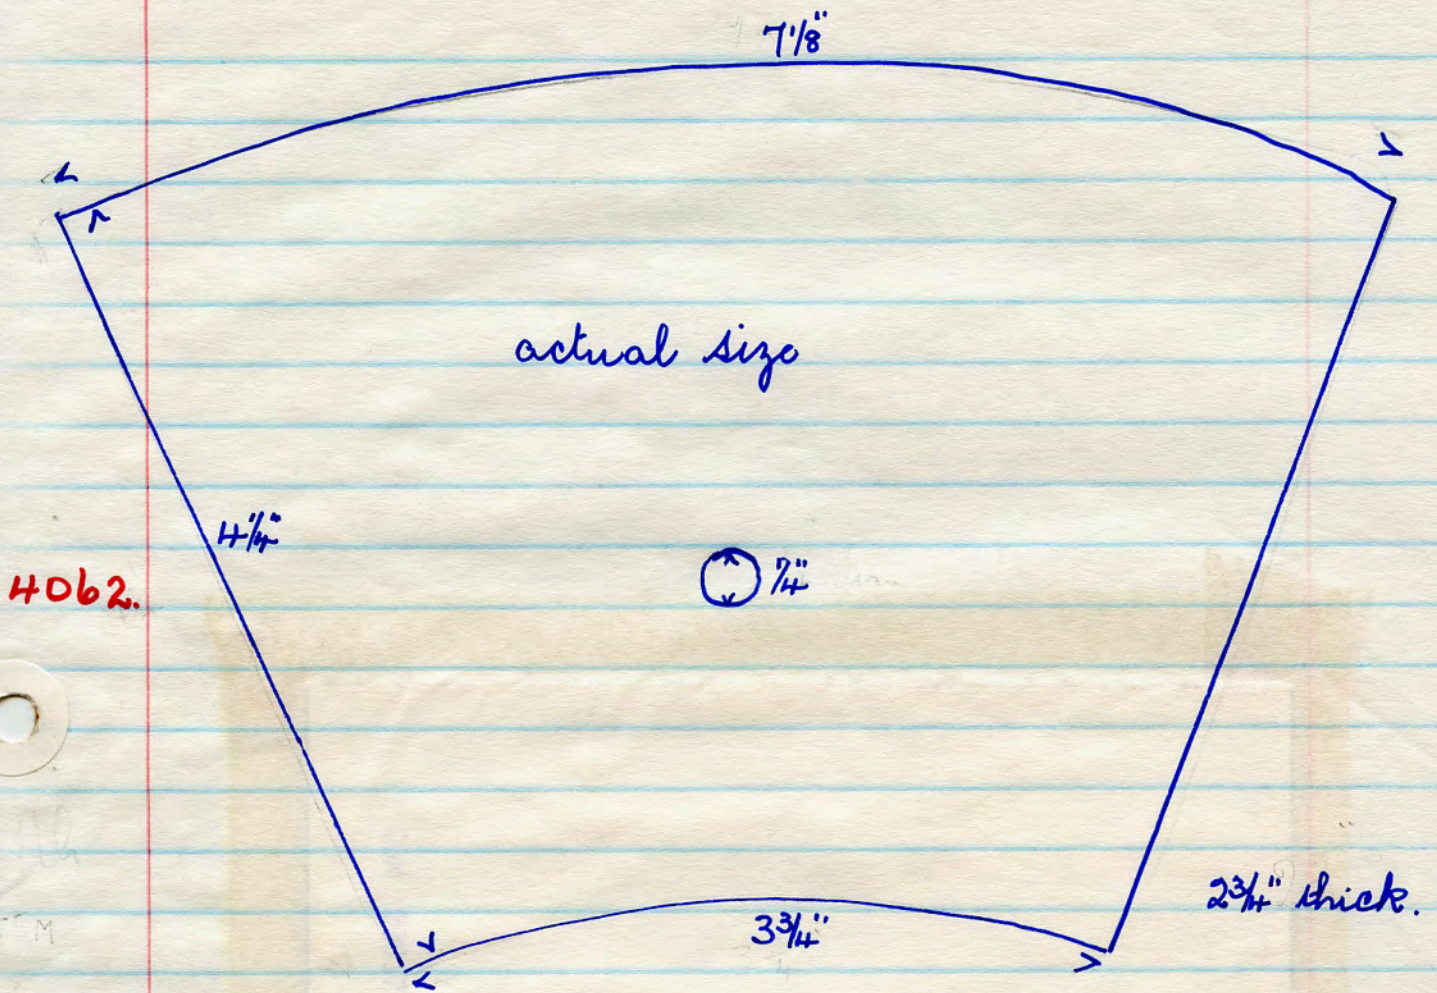 7 1/8"
actual size
4 1/4"
4062.
7/4"
2 3/4" thick.
3 3/4"